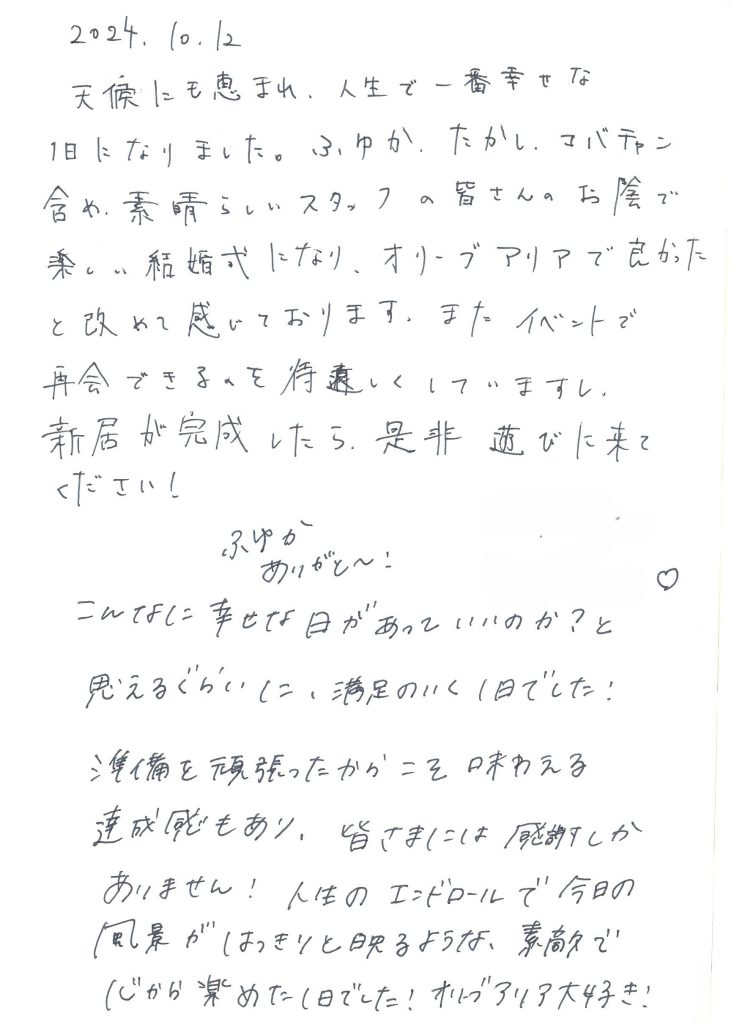 2024.10.12
天候にも恵まれ、人生で一番幸せな
1日になりました。ふゆか、たかし、コバチャン
含め、素晴らしいスタッフの皆さんのお陰で
楽しい結婚式になり、オリーブアリアで良かった
と改めて感じております。また イベントで
再会できるのを待遠しくしていますし、
新居が完成したら、是非 遊びに来て
ください!
ふゆか
ありがと〜!
♡
こんなに幸せな日があっていいのか?と
思えるぐらいに、満足のいく1日でした!
準備を頑張ったからこそ味わえる
達成感もあり、皆さまには感謝しか
ありません! 人生のエンドロールで今日の
風景がはっきりと映るような、素敵で
心から楽めた1日でした! オリーブアリア大好き!